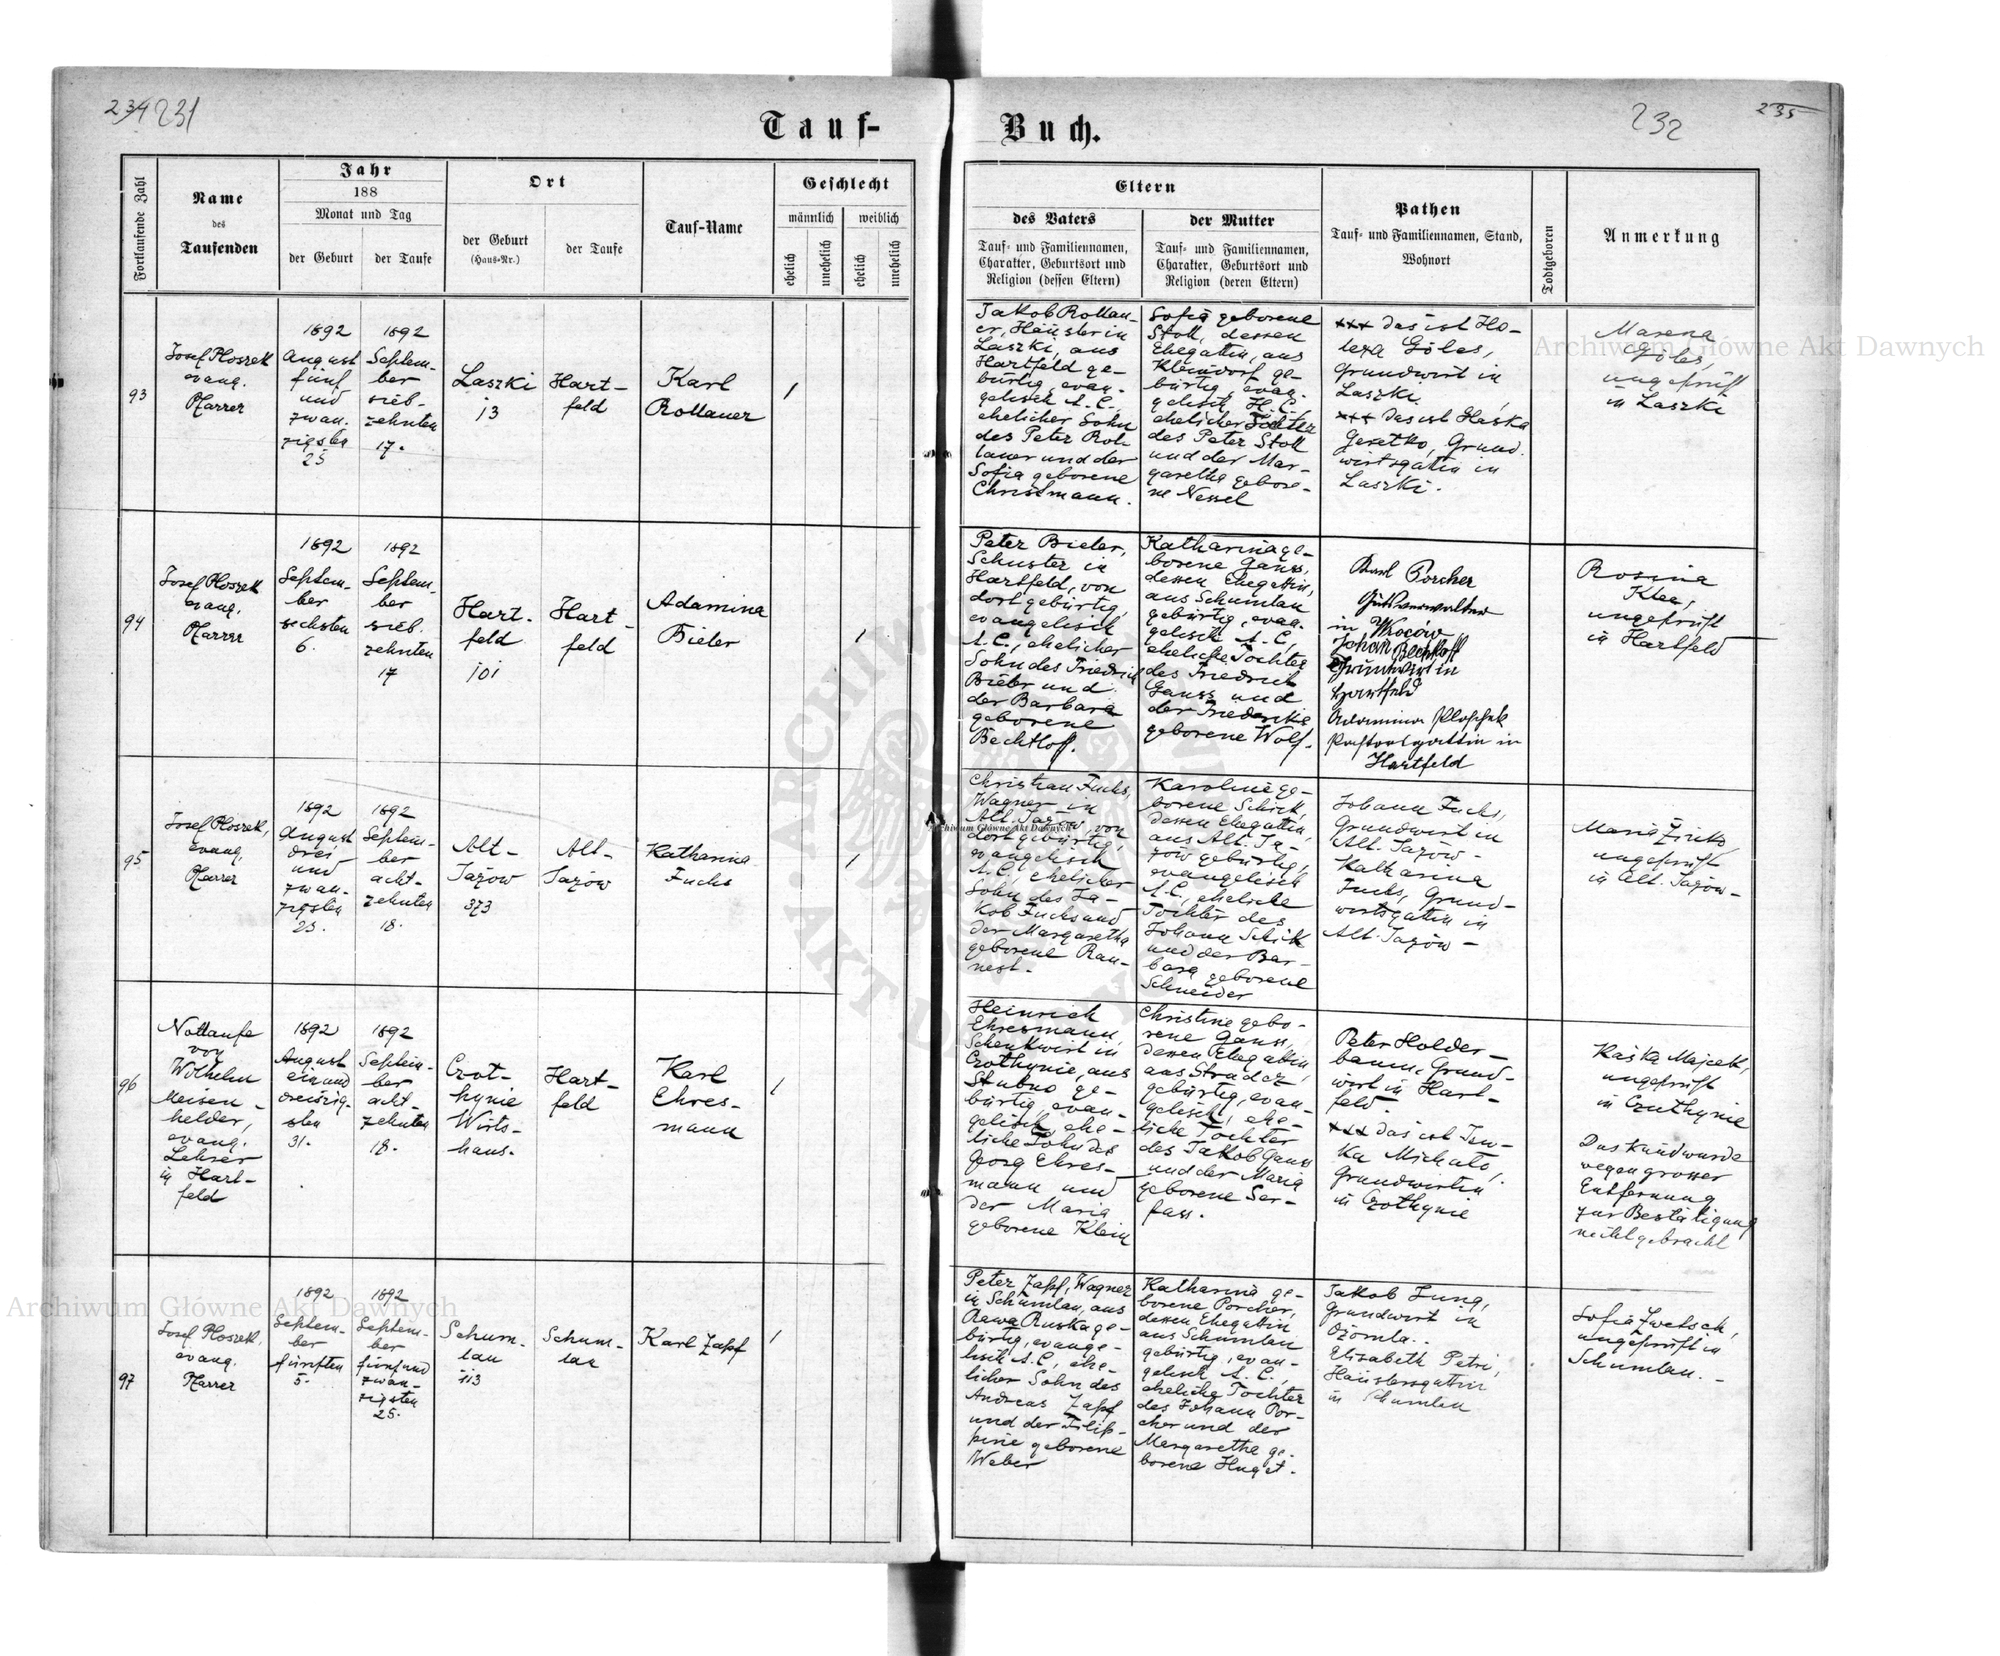 234 231
Tauf-
Buch.
232
235
Fortlaufende Zahl
Name
des
Taufenden
Jahr
188
Monat und Tag
der Geburt
der Taufe
Ort
der Geburt
(Haus-Nr.)
der Taufe
Tauf-Name
Geschlecht
männlich
weiblich
ehelich
unehelich
ehelich
unehelich
Eltern
des Vaters
Tauf- und Familiennamen,
Charakter, Geburtsort und
Religion (dessen Eltern)
der Mutter
Tauf- und Familiennamen,
Charakter, Geburtsort und
Religion (deren Eltern)
Pathen
Tauf- und Familiennamen, Stand,
Wohnort
Todtgeboren
Anmerkung
93
Josef Ploszek
evang.
Pfarrer
1892
August
fünf
und
zwan-
zigsten
25
1892
Septem-
ber
sieb-
zehnten
17.
Laszki
13
Hart-
feld
Karl
Rollauer
1
Jakob Rollau-
er, Häusler in
Laszki, aus
Hartfeld ge-
bürtig, evan-
gelisch A.C.,
ehelicher Sohn
des Peter Rol-
lauer und der
Sofia geborene
Christmann.
Sofia geborene
Stoll, dessen
Ehegattin, aus
Kleindorf ge-
bürtig, evan-
gelisch H.C.,
ehelicher Tochter
des Peter Stoll
und der Mar-
garetha gebore-
ne Nessel
+++ das ist
Göles,
Grundwirt in
Laszki.
+++ das ist Haska
Grund-
wirtsgattin in
Laszki.
Marena
Göles,
ungeprüft
in Laszki
94
Josef Ploszek
evang.
Pfarrer
1892
Septem-
ber
sechsten
6.
1892
Septem-
ber
sieb-
zehnten
17
Hart-
feld
101
Hart-
feld
Adamina
Bieler
1
Peter Bieler,
Schuster in
Hartfeld, von
dort gebürtig,
evangelisch
A.C., ehelicher
Sohn des Friedrich
Bieler und
der Barbara
geborene
Bechtloff.
Katharina ge-
borene Gauss,
dessen Ehegattin,
aus Schumlau
gebürtig, evan-
gelisch A.C.,
eheliche Tochter
des Friedrich
Gauss und
der Friederike
geborene Wolf.
Karl Porcher
Gutsverwalter
in Wroców
Johan Bechtloff
Grundwirt in
Hartfeld
Adamina Ploschek
Pastorsgattin in
Hartfeld
Rosina
Klee,
ungeprüft
in Hartfeld
95
Josef Ploszek,
evang.
Pfarrer
1892
August
drei
und
zwan-
zigsten
23.
1892
Septem-
ber
acht-
zehnten
18.
Alt-
Jazow
373
Alt-
Jazów
Katharina
Fuchs
1
Christian Fuchs,
Wagner in
Alt-Jazów, von
dort gebürtig,
evangelisch
A.C., ehelicher
Sohn des Ja-
kob Fuchs und
der Margaretha
geborene Rau-
nest.
Karoline ge-
borene Schick,
dessen Ehegattin,
aus Alt-Ja-
zów gebürtig,
evangelisch
A.C., eheliche
Tochter des
Johann Schick
und der Bar-
bara geborene
Schneider
Johann Fuchs,
Grundwirt in
Alt-Jazów-
Katharina
Fuchs, Grund-
wirtsgattin in
Alt-Jazów-
Maria
ungeprüft
in Alt-Jazów-
96
Nottaufe
von
Wilhelm
Meisen-
helder,
evang.
Lehrer
in Hart-
feld
1892
August
ein und
dreiszig-
sten
31.
1892
Septem-
ber
acht-
zehnten
18.
Czot-
hynie
Wirts-
haus.
Hart-
feld
Karl
Ehres-
mann
1
Heinrich
Ehresmann,
Schenkwirt in
Czothynie, aus
Stubno ge-
bürtig, evan-
gelisch, ehe-
liche Sohn des
Georg Ehres-
mann und
der Maria
geborene Klein
Christine gebo-
rene Gauss,
dessen Ehegattin
aus Stradcz
gebürtig, evan-
gelisch, ehe-
liche Tochter
des Jakob Gauss
und der Maria
geborene Ser-
fass.
Peter Holder-
baum, Grund-
wirt in Hart-
feld.
+++ das ist
Grundwirtin
in Czothynie
Kaśka
ungeprüft
in Czothynie
Das Kind wurde
wegen grosser
Entfernung
zur Bestätigung
nicht gebracht
97
Josef Ploszek,
evang.
Pfarrer
1892
Septem-
ber
fünften
5.
1892
Septem-
ber
fünf und
zwan-
zigsten
25.
Schum-
lau
113
Schum-
lau
Karl Zapf
1
Peter Zapf, Wagner
in Schumlau, aus
Rawa Ruska ge-
bürtig, evange-
lisch A.C., ehe-
licher Sohn des
Andreas Zapf
und der Filip-
pine geborene
Weber
Katharina ge-
borene Porcher,
dessen Ehegattin
aus Schumlau
gebürtig, evan-
gelisch A.C.,
eheliche Tochter
des Johann Por-
cher und der
Margaretha ge-
borene Huget.
Jakob Jung,
Grundwirt in
Ożomla.
Elisabeth Petri,
Häuslersgattin
in Schumlau
Sofia Zwetsch,
ungeprüft in
Schumlau.
Archiwum Główne Akt Dawnych
Archiwum Główne Akt Dawnych
Archiwum Główne Akt Dawnych